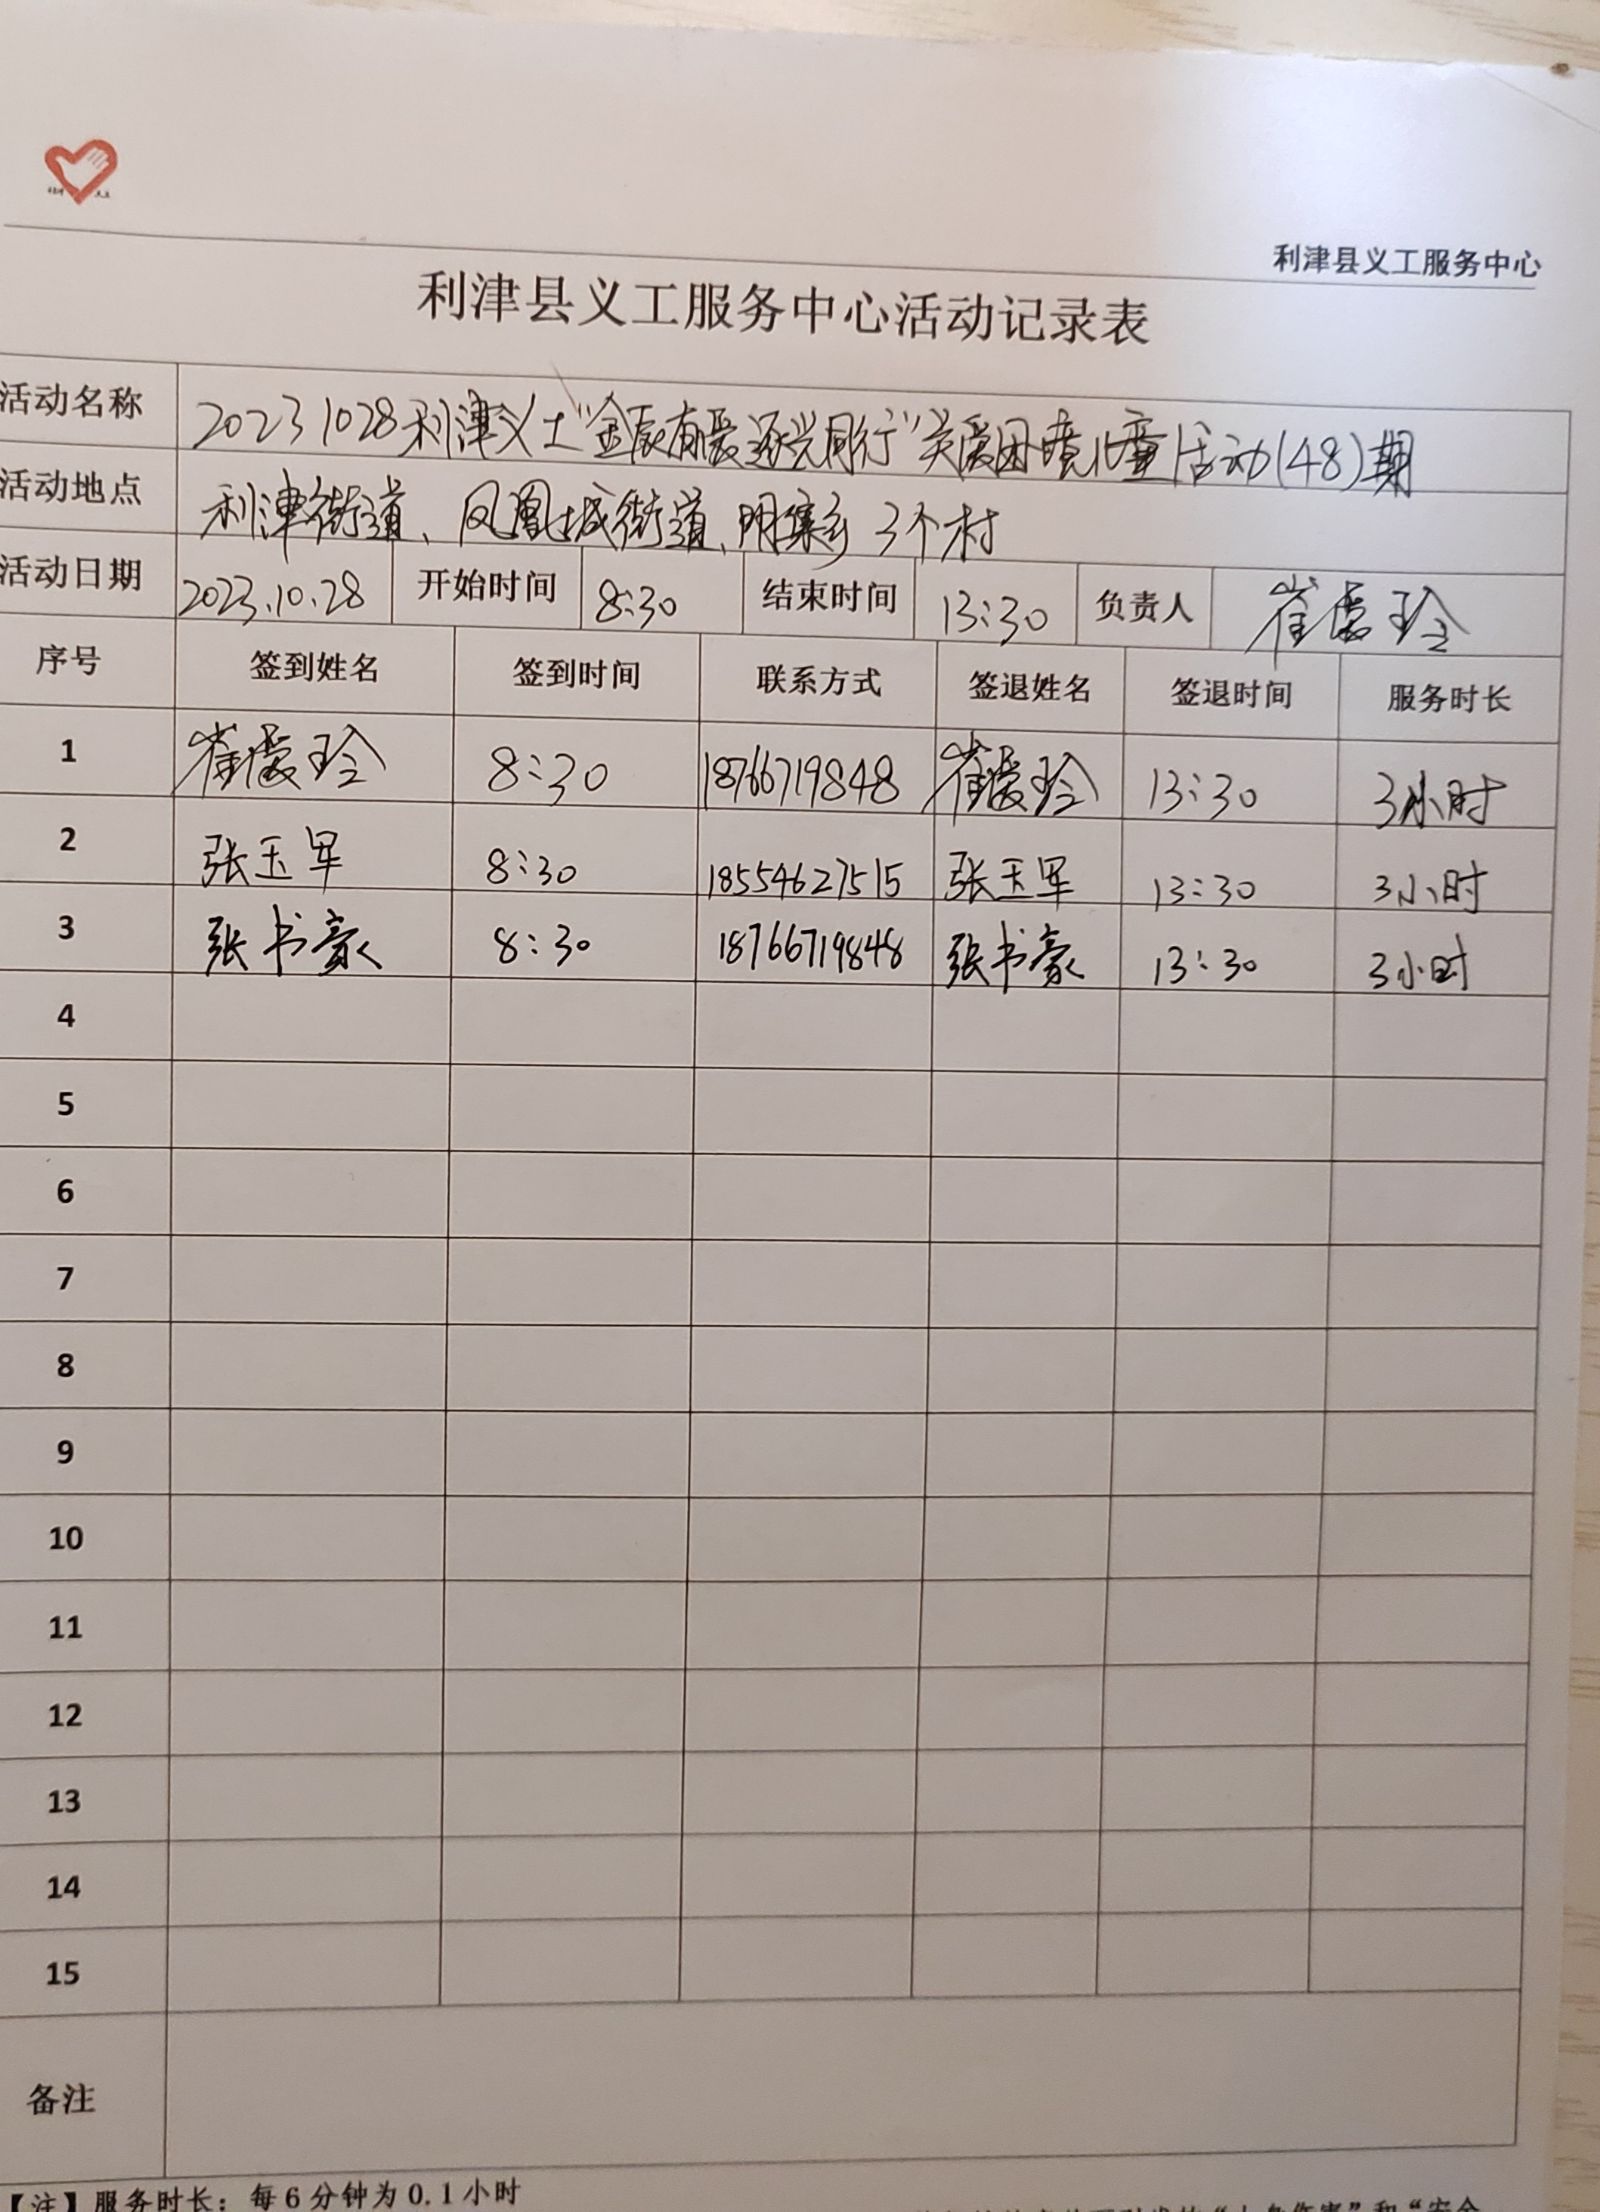 利津县义工服务中心
利津县义工服务中心活动记录表
活动名称 20231028利津义工“金辰有爱 逐兴同行”关爱困境儿童活动(48)期
活动地点 利津街道、凤凰城街道、明集乡 3个村
活动日期 2023.10.28 开始时间 8:30 结束时间 13:30 负责人 崔爱玲
序号 签到姓名 签到时间 联系方式 签退姓名 签退时间 服务时长
1 崔爱玲 8:30 18766719848 崔爱玲 13:30 3小时
2 张玉军 8:30 18554627515 张玉军 13:30 3小时
3 张书豪 8:30 18766719848 张书豪 13:30 3小时
4
5
6
7
8
9
10
11
12
13
14
15
备注
【注】服务时长：每6分钟为0.1小时